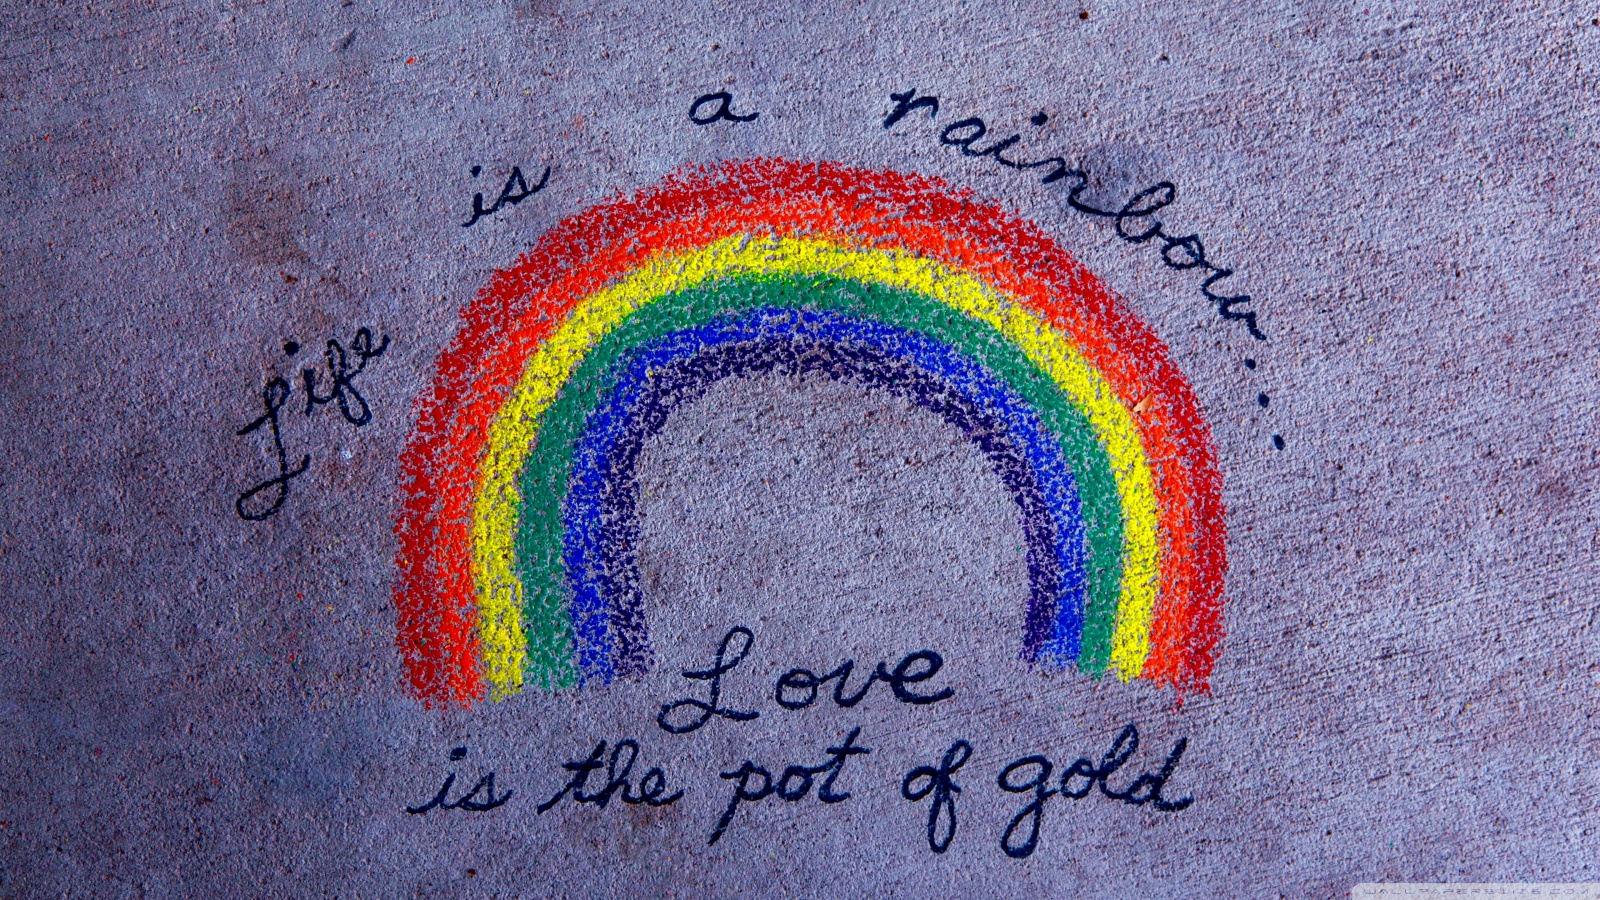 Life is a rainbow...
Love
is the pot of gold
WALLPAPERSWIDE.COM